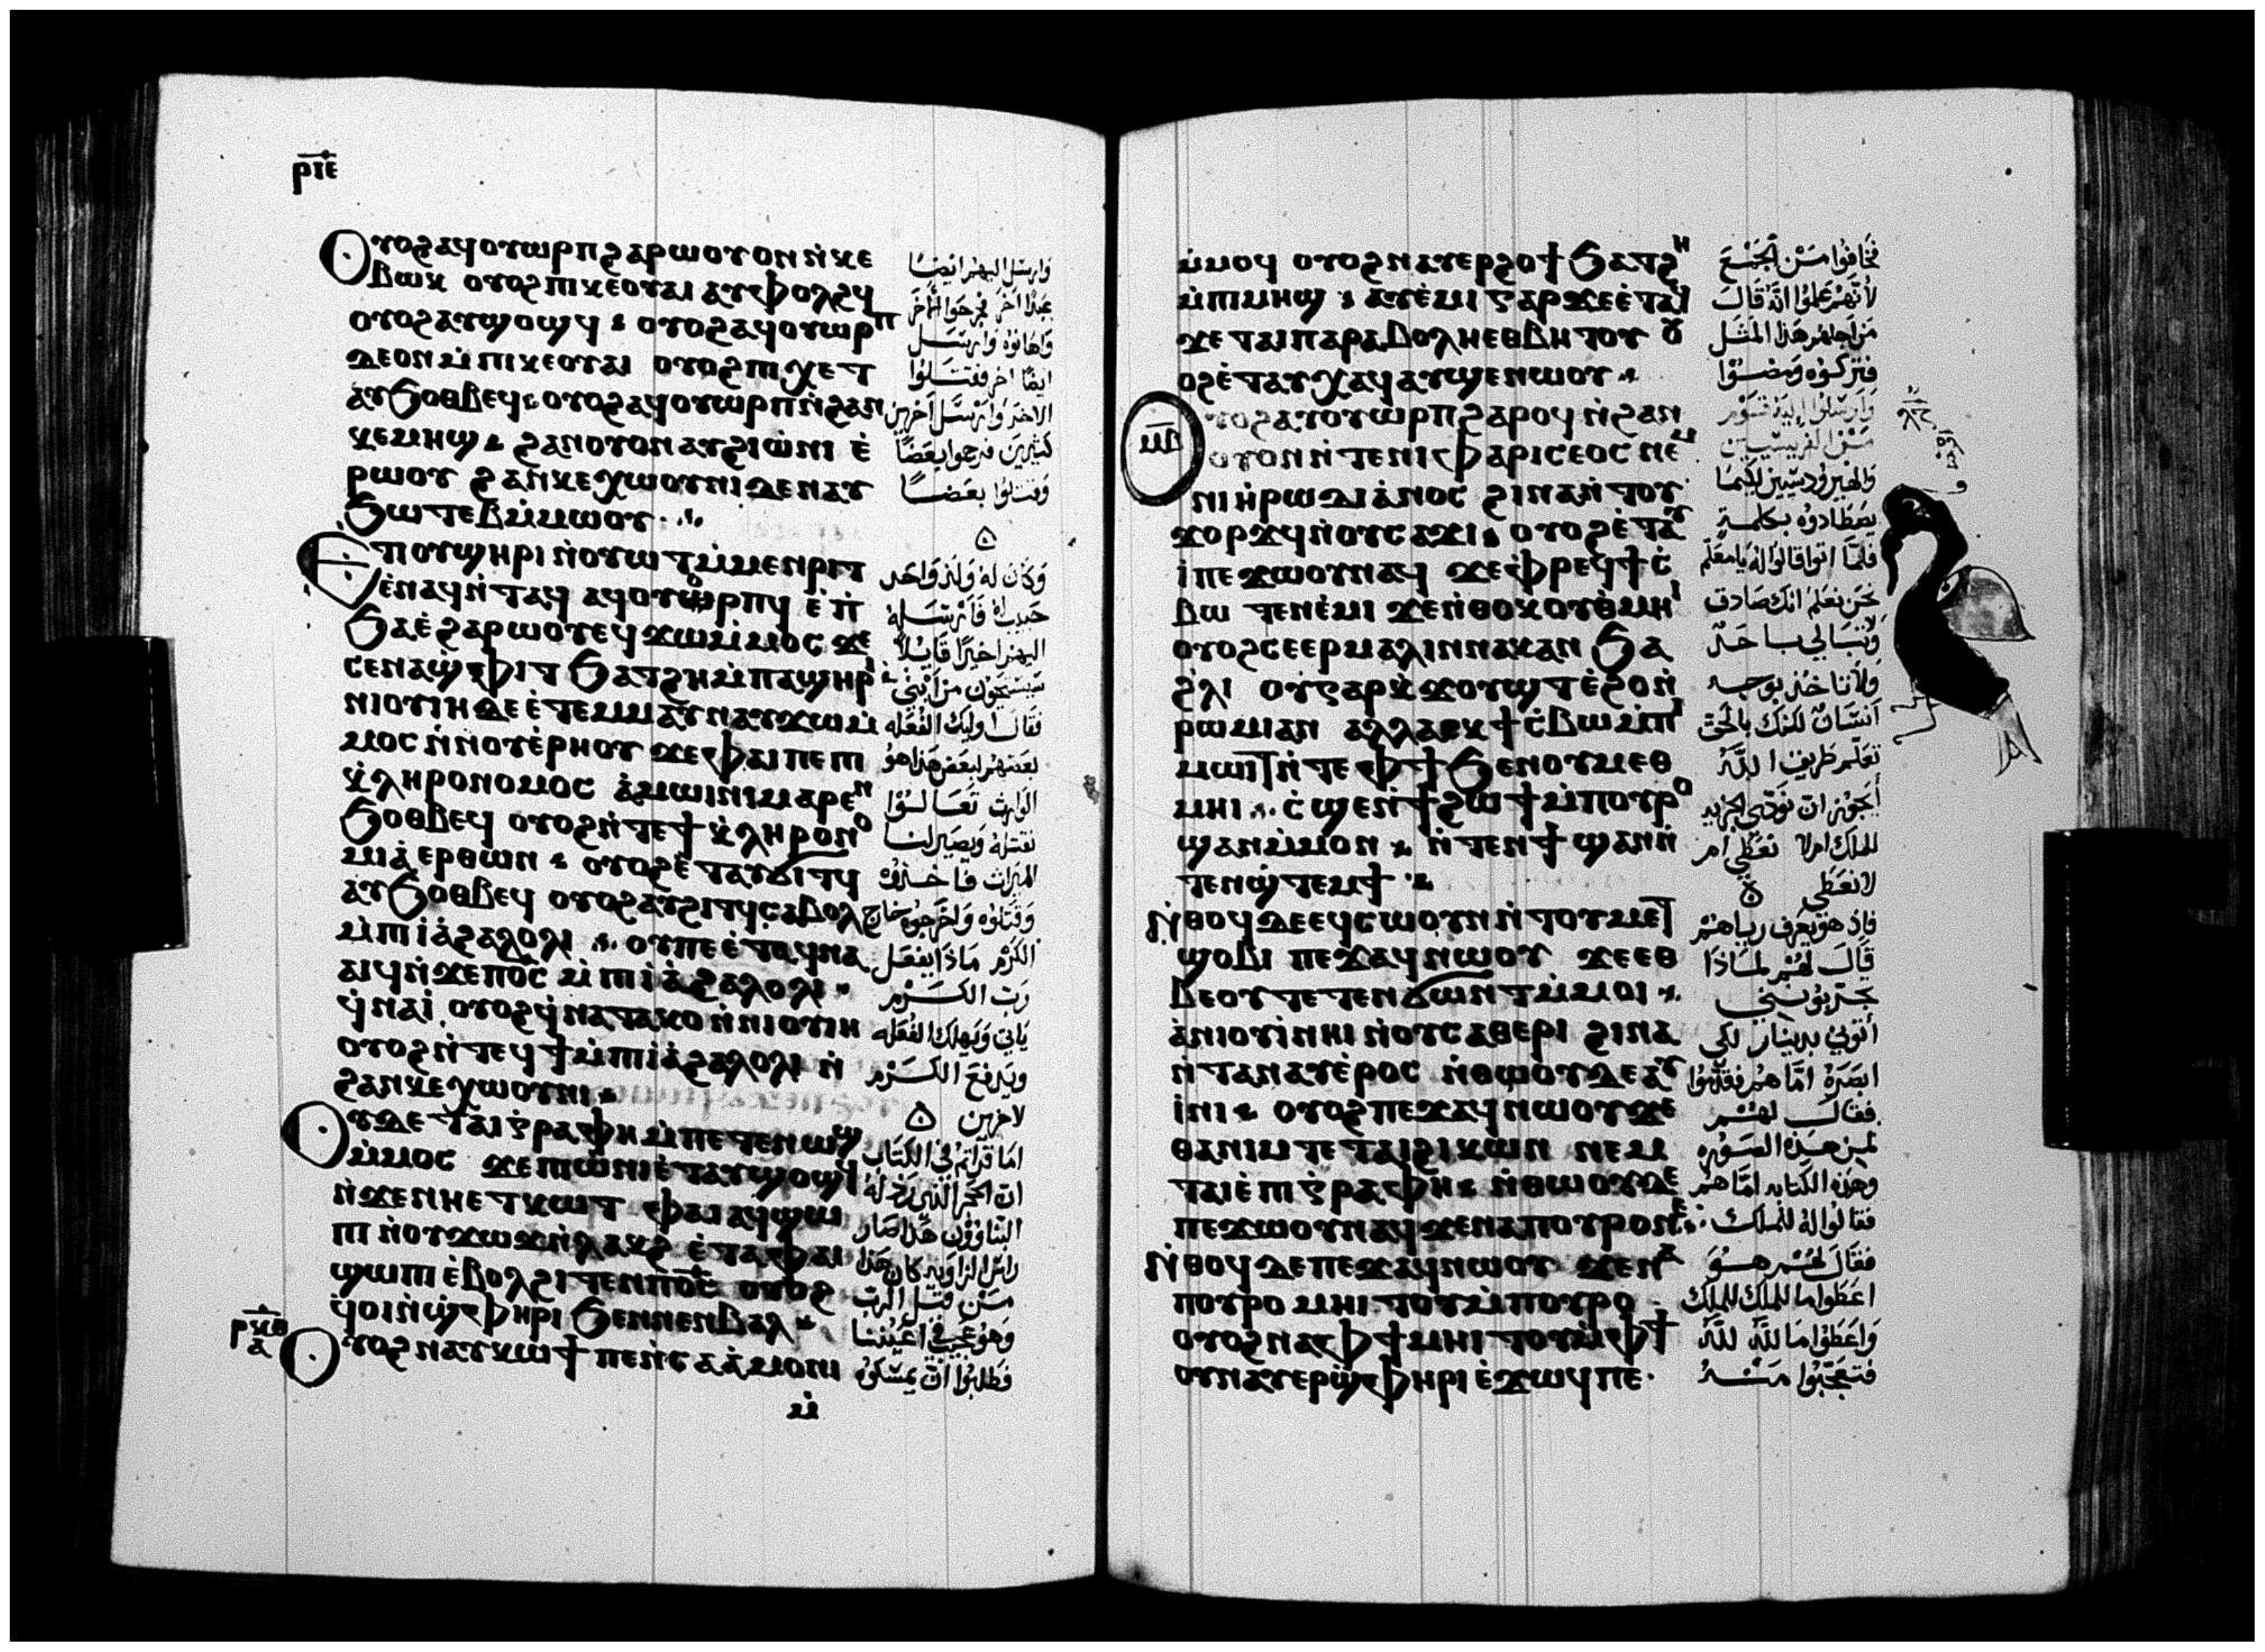 ⲣⲓⲉ
Ⲟⲩⲟϩ ⲁϥⲟⲩⲱⲣⲡ ϩⲁⲣⲱⲟⲩ ⲟⲛ ⲛ̀ⲕⲉ
ⲃⲱⲕ ⲟⲩⲟϩ ⲡⲓⲕⲉⲟⲩⲁⲓ ⲁⲩⲫⲟⲗϩϥ
ⲟⲩⲟϩ ⲁⲩϣⲟϣϥ ⲟⲩⲟϩ ⲁϥⲟⲩⲱⲣⲡ
ⲇⲉ ⲟⲛ ⲙ̀ⲡⲓⲕⲉⲟⲩⲁⲓ ⲟⲩⲟϩ ⲡⲓⲭⲉⲧ
ⲁⲩϧⲟⲑⲃⲉϥ ⲟⲩⲟϩ ⲁϥⲟⲩⲱⲣⲡ ⲛ̀ϩⲁⲛ
ⲕⲉⲙⲏϣ ϩⲁⲛⲟⲩⲟⲛ ⲁⲩϩⲓⲱ̀ⲛⲓ ⲉ̀
ⲣⲱⲟⲩ ϩⲁⲛⲕⲉⲭⲱⲟⲩⲛⲓ ⲇⲉ ⲛⲁⲩ
ϧⲱⲧⲉⲃ ⲙ̀ⲙⲱⲟⲩ
Ⲉⲧⲓ ⲟⲩϣⲏⲣⲓ ⲛ̀ⲟⲩⲱⲧ ⲙ̀ⲙⲉⲛⲣⲓⲧ
ⲉ̀ⲛⲁϥⲛ̀ⲧⲁϥ ⲁϥⲟⲩⲟⲣⲡϥ ⲉ̀ⲡ̀
ϧⲁⲉ̀ ϩⲁⲣⲱⲟⲩ ⲉϥϫⲱ ⲙ̀ⲙⲟⲥ ϫⲉ
ⲥⲉⲛⲁϣ̀ⲫⲓⲧ ϧⲁⲧϩⲏ ⲙ̀ⲡⲁϣⲏⲣⲓ
ⲛⲓⲟⲩⲓⲏ ⲇⲉ ⲉ̀ⲧⲉⲙⲙⲁⲩ ⲛⲁⲩϫⲱ ⲙ̀
ⲙⲟⲥ ⲛ̀ⲛⲟⲩⲉ̀ⲣⲏⲟⲩ ϫⲉ ⲫⲁⲓ ⲡⲉ ⲡⲓ
ⲕ̀ⲗⲏⲣⲟⲛⲟⲙⲟⲥ ⲁ̀ⲙⲱⲓⲛⲓ ⲙⲁⲣⲉⲛ
ϧⲟⲑⲃⲉϥ ⲟⲩⲟϩ ⲛ̀ⲧⲉϯⲕ̀ⲗⲏⲣⲟⲛⲟ
ⲙⲓⲁ̀ ⲉⲣ ⲑⲱⲛ ⲟⲩⲟϩ ⲉ̀ⲧⲁⲩϭⲓⲧϥ
ⲁⲩϧⲟⲑⲃⲉϥ ⲟⲩⲟϩ ⲁⲩϩⲓⲧϥ ⲥⲁⲃⲟⲗ
ⲙ̀ⲡⲓⲁ̀ϩⲁⲗⲟⲗⲓ ⲟⲩ ⲡⲉ ⲉ̀ⲧⲁϥⲛⲁ
ⲁⲓϥ ⲛ̀ϫⲉ ⲡⲟ̅ⲥ̅ ⲙ̀ⲡⲓⲁ̀ϩⲁⲗⲟⲗⲓ
ϥ̀ⲛⲁⲓ̀ ⲟⲩⲟϩ ϥ̀ⲛⲁⲧⲁⲕⲟ ⲛ̀ⲛⲓⲟⲩⲓⲏ
ⲟⲩⲟϩ ⲛ̀ⲧⲉϥϯ ⲙ̀ⲡⲓⲁ̀ϩⲁⲗⲟⲗⲓ ⲛ̀
ϩⲁⲛⲕⲉⲭⲱⲟⲩⲛⲓ
Ⲟⲩⲇⲉ ⲧⲁⲓⲅ̀ⲣⲁⲫⲏ ⲙ̀ⲡⲉⲧⲉⲛⲱϣ
ⲙ̀ⲙⲟⲥ ϫⲉ ⲡⲓⲱ̀ⲛⲓ ⲉ̀ⲧⲁⲩϣⲟϣϥ
ⲛ̀ϫⲉ ⲛⲏⲉⲧⲕⲱⲧ ⲫⲁⲓ ⲁϥϣⲱ
ⲡⲓ ⲛ̀ⲟⲩϫⲱϫ ⲛ̀ⲗⲁⲕϩ ⲉ̀ⲧⲁ ⲫⲁⲓ
ϣⲱⲡⲓ ⲉ̀ⲃⲟⲗϩⲓⲧⲉⲛ ⲡⲟ̅ⲥ̅ ⲟⲩⲟϩ
ϥ̀ⲟⲓ ⲛ̀ϣ̀ⲫⲏⲣⲓ ϧⲉⲛ ⲛⲉⲛⲃⲁⲗ
ⲣⲕⲑ
ⲁ
Ⲟⲩⲟϩ ⲛⲁⲩⲕⲱϯ ⲡⲉ ⲛ̀ⲥⲁ ⲁ̀ⲙⲟⲛⲓ
ⲙ̀
وارسل اليهم ايضا
عبدا اخر فجرحوا الاخر
واهانوه وارسل
ايضا اخر فقتلوا
الاخر وارسل اخرين
كثيرين فرجموا بعضا
وقتلوا بعضا
وكان له ولد واحد
حبيب له فارسله
اليهم اخيرا قايلا
سيستحيون من ابني
فقال اوليك الفعله
لبعضهم لبعض هذا هو
الوارث تعالوا
نقتله ويصير لنا
الميراث فاخذوه
وقتلوه واخرجوه خارج
الكرم ماذا يفعل
رب الكرم
ياتي ويهلك الفعله
ويدفع الكرم
لاخرين
اما قراتم في الكتاب
ان الحجر الذي رذله
البناوون هذا صار
راس الزاويه كان هذا
من قبل الرب
وهو عجيب في اعيننا
فطلبوا ان يمسكوه
ⲙ̀ⲙⲟϥ ⲟⲩⲟϩ ⲛⲁⲩⲉⲣϩⲟϯ ϧⲁⲧϩⲏ
ⲙ̀ⲡⲓⲙⲏϣ ⲁⲩⲉ̀ⲙⲓ ⲅⲁⲣ ϫⲉ ⲉ̀ⲧⲁϥ
ϫⲉ ⲧⲁⲓⲡⲁⲣⲁⲃⲟⲗⲏ ⲉⲑⲃⲏⲧⲟⲩ ⲟⲩ
ⲟϩ ⲉ̀ⲧⲁⲩⲭⲁϥ ⲁⲩϣⲉⲛⲱⲟⲩ
ⲙⲃ
ⲟⲩⲟϩ ⲁⲩⲟⲩⲱⲣⲡ ϩⲁⲣⲟϥ ⲛ̀ϩⲁⲛ
ⲟⲩⲟⲛ ⲛ̀ⲧⲉ ⲛⲓⲫⲁⲣⲓⲥⲉⲟⲥ ⲛⲉⲙ
ⲛⲓⲏ̀ⲣⲱⲇⲓⲁ̀ⲛⲟⲥ ϩⲓⲛⲁ ⲛ̀ⲧⲟⲩ
ϫⲟⲣϫϥ ⲛ̀ⲟⲩⲥⲁϫⲓ ⲟⲩⲟϩ ⲉ̀ⲧⲁⲩ
ⲓ̀ ⲡⲉϫⲱⲟⲩ ⲛⲁϥ ϫⲉ ⲫ̀ⲣⲉϥϯⲥ̀
ⲃⲱ ⲧⲉⲛⲉ̀ⲙⲓ ϫⲉ ⲛ̀ⲑⲟⲕ ⲟⲩⲑ̀ⲙⲏⲓ
ⲟⲩⲟϩ ⲥⲉⲉⲣⲙⲁⲗⲓⲛ ⲛⲁⲕ ⲁⲛ ϧⲁ
ϩ̀ⲗⲓ ⲟⲩ ⲅⲁⲣ ⲕ̀ϫⲟⲩϣⲧ ⲉ̀ϩⲟ ⲛ̀
ⲣⲱⲙⲓ ⲁⲛ ⲁⲗⲗⲁ ⲉⲕϯⲥ̀ⲃⲱ ⲙ̀ⲡⲓ
ⲙⲱⲓⲧ ⲛ̀ⲧⲉ ⲫϯ ϧⲉⲛ ⲟⲩⲙⲉⲑ
ⲙⲏⲓ ⲥ̀ϣⲉ ⲛ̀ϯϩⲱϯ ⲙ̀ⲡⲟⲩⲣⲟ
ϣⲁⲛ ⲙ̀ⲙⲟⲛ ⲛ̀ⲧⲉⲛϯ ϣⲁⲛ ⲛ̀
ⲧⲉⲛϣ̀ⲧⲉⲙϯ
Ⲛ̀ⲑⲟϥ ⲇⲉ ⲉϥⲥⲱⲟⲩⲛ ⲛ̀ⲧⲟⲩⲙⲉⲧ
ϣⲟⲃⲓ ⲡⲉϫⲁϥ ⲛⲱⲟⲩ ϫⲉ ⲉⲑ
ⲃⲉⲟⲩ ⲧⲉⲧⲉⲛϭⲱⲛⲧ ⲙ̀ⲙⲟⲓ
ⲁ̀ⲛⲓⲟⲩⲓ̀ ⲛⲏⲓ ⲛ̀ⲟⲩⲥⲁⲑⲉⲣⲓ ϩⲓⲛⲁ
ⲛ̀ⲧⲁⲛⲁⲩ ⲉ̀ⲣⲟⲥ ⲛ̀ⲑⲱⲟⲩ ⲇⲉ ⲁⲩ
ⲓ̀ⲛⲓ ⲟⲩⲟϩ ⲡⲉϫⲁϥ ⲛⲱⲟⲩ ϫⲉ
ⲑⲁⲛⲓⲙ ⲧⲉ ⲧⲁⲓϩⲓⲕⲱⲛ ⲛⲉⲙ
ⲧⲁⲓⲉ̀ⲡⲓⲅ̀ⲣⲁⲫⲏ ⲛ̀ⲑⲱⲟⲩ ⲇⲉ
ⲡⲉϫⲱⲟⲩ ⲛⲁϥ ϫⲉ ⲛⲁ ⲡⲟⲩⲣⲟ ⲛⲉ
Ⲛ̀ⲑⲟϥ ⲇⲉ ⲡⲉϫⲁϥ ⲛⲱⲟⲩ ϫⲉ ⲛⲁ
ⲡⲟⲩⲣⲟ ⲙⲏⲓⲧⲟⲩ ⲙ̀ⲡⲟⲩⲣⲟ
ⲟⲩⲟϩ ⲛⲁ ⲫϯ ⲙⲏⲓⲧⲟⲩ ⲙ̀ⲫϯ
ⲟⲩⲛⲁⲩⲉⲣϣ̀ⲫⲏⲣⲓ ⲉ̀ϫⲱϥ ⲡⲉ
فخافوا من الجمع
لانهم علموا انه قال
من اجلهم هذا المثل
فتركوه ومضوا
وارسلوا اليه قوم
من الفريسيين
والهيرودسيين لكيما
يصطادوه بكلمة
فلما اتوا قالوا له يا معلم
نحن نعلم انك صادق
ولا تبالي باحد
ولا تاخذ بوجه
انسان لكنك بالحق
تعلم طريق الله
أيجوز ان نودي الجزيه
للملك ام لا نعطي ام
لا نعطي
فاذ هو يعرف رياهم
قال لهم لماذا
تجربونني
أتوني بدينار لكي
ابصره اما هم فقدموا
فقال لهم
لمن هذه الصوره
وهذه الكتابه اما هم
فقالوا له للملك
فقال لهم هو
اعطوا ما للملك للملك
واعطوا ما لله لله
فتعجبوا منه